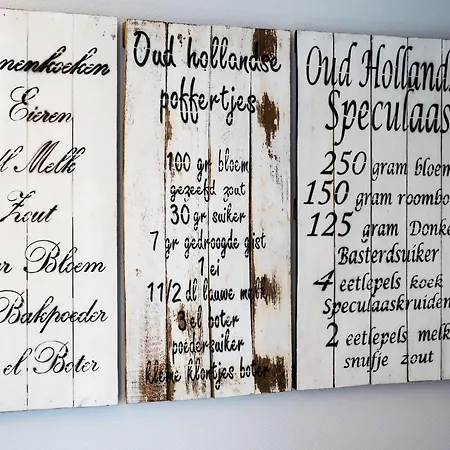 nenkoeken
Eieren
dl Melk
Zout
ar Bloem
Bakpoeder
el Boter
Oud hollandse
poffertjes
100 gr bloem
gezeefd zout
30 gr suiker
7 gr gedroogde gist
1 ei
1 1/2 dl lauwe melk
3 el boter
poedersuiker
kleine klontjes boter
Oud Hollands
Speculaas
250 gram bloem
150 gram roombo
125 gram Donke
Basterdsuiker
4 eetlepels koek
Speculaaskruiden
2 eetlepels melk
snufje zout